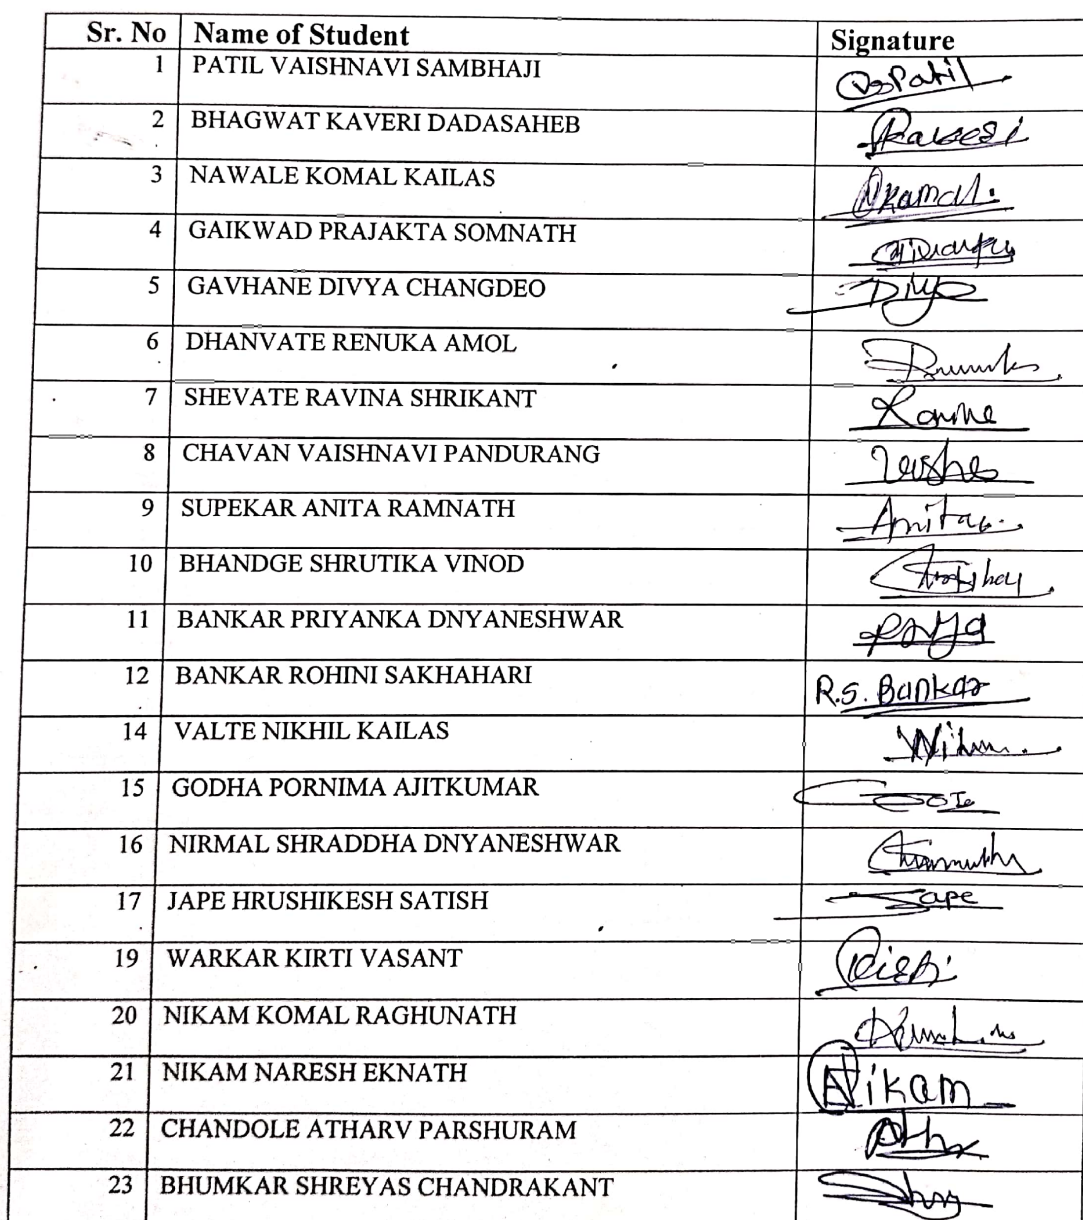 Sr. No Name of Student Signature
1 PATIL VAISHNAVI SAMBHAJI VsPatil
2 BHAGWAT KAVERI DADASAHEB Kaveri
3 NAWALE KOMAL KAILAS
4 GAIKWAD PRAJAKTA SOMNATH
5 GAVHANE DIVYA CHANGDEO
6 DHANVATE RENUKA AMOL
7 SHEVATE RAVINA SHRIKANT
8 CHAVAN VAISHNAVI PANDURANG
9 SUPEKAR ANITA RAMNATH Anita
10 BHANDGE SHRUTIKA VINOD
11 BANKAR PRIYANKA DNYANESHWAR
12 BANKAR ROHINI SAKHAHARI R.S. Bankar
14 VALTE NIKHIL KAILAS
15 GODHA PORNIMA AJITKUMAR
16 NIRMAL SHRADDHA DNYANESHWAR
17 JAPE HRUSHIKESH SATISH Jape
19 WARKAR KIRTI VASANT
20 NIKAM KOMAL RAGHUNATH
21 NIKAM NARESH EKNATH Nikam
22 CHANDOLE ATHARV PARSHURAM
23 BHUMKAR SHREYAS CHANDRAKANT